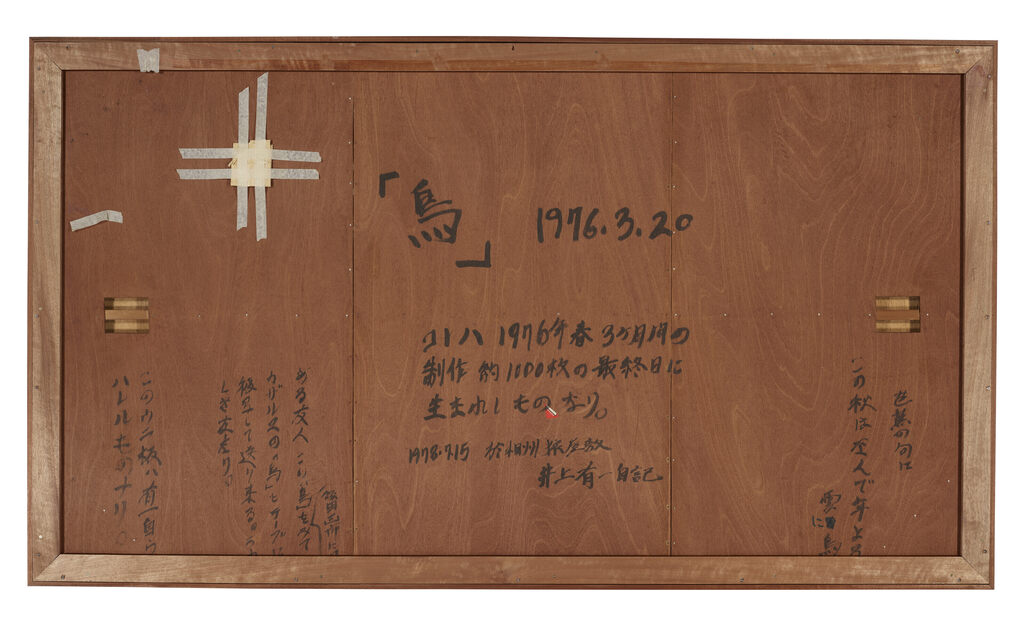 「鳥」 1976.3.20
コレハ 1976年春 3ヶ月間の
制作 約1000枚の最終日に
生まれしものなり。
1978.7.15 於相州
井上有一自記
芭蕉の句に
この秋はなんで年よる
雲に鳥
ある友人 コノ鳥をみて
カザルスの「鳥」を テープに
して送り来る。
しき友なり
このウラ板ハ有一自ら
ハレルものナリ